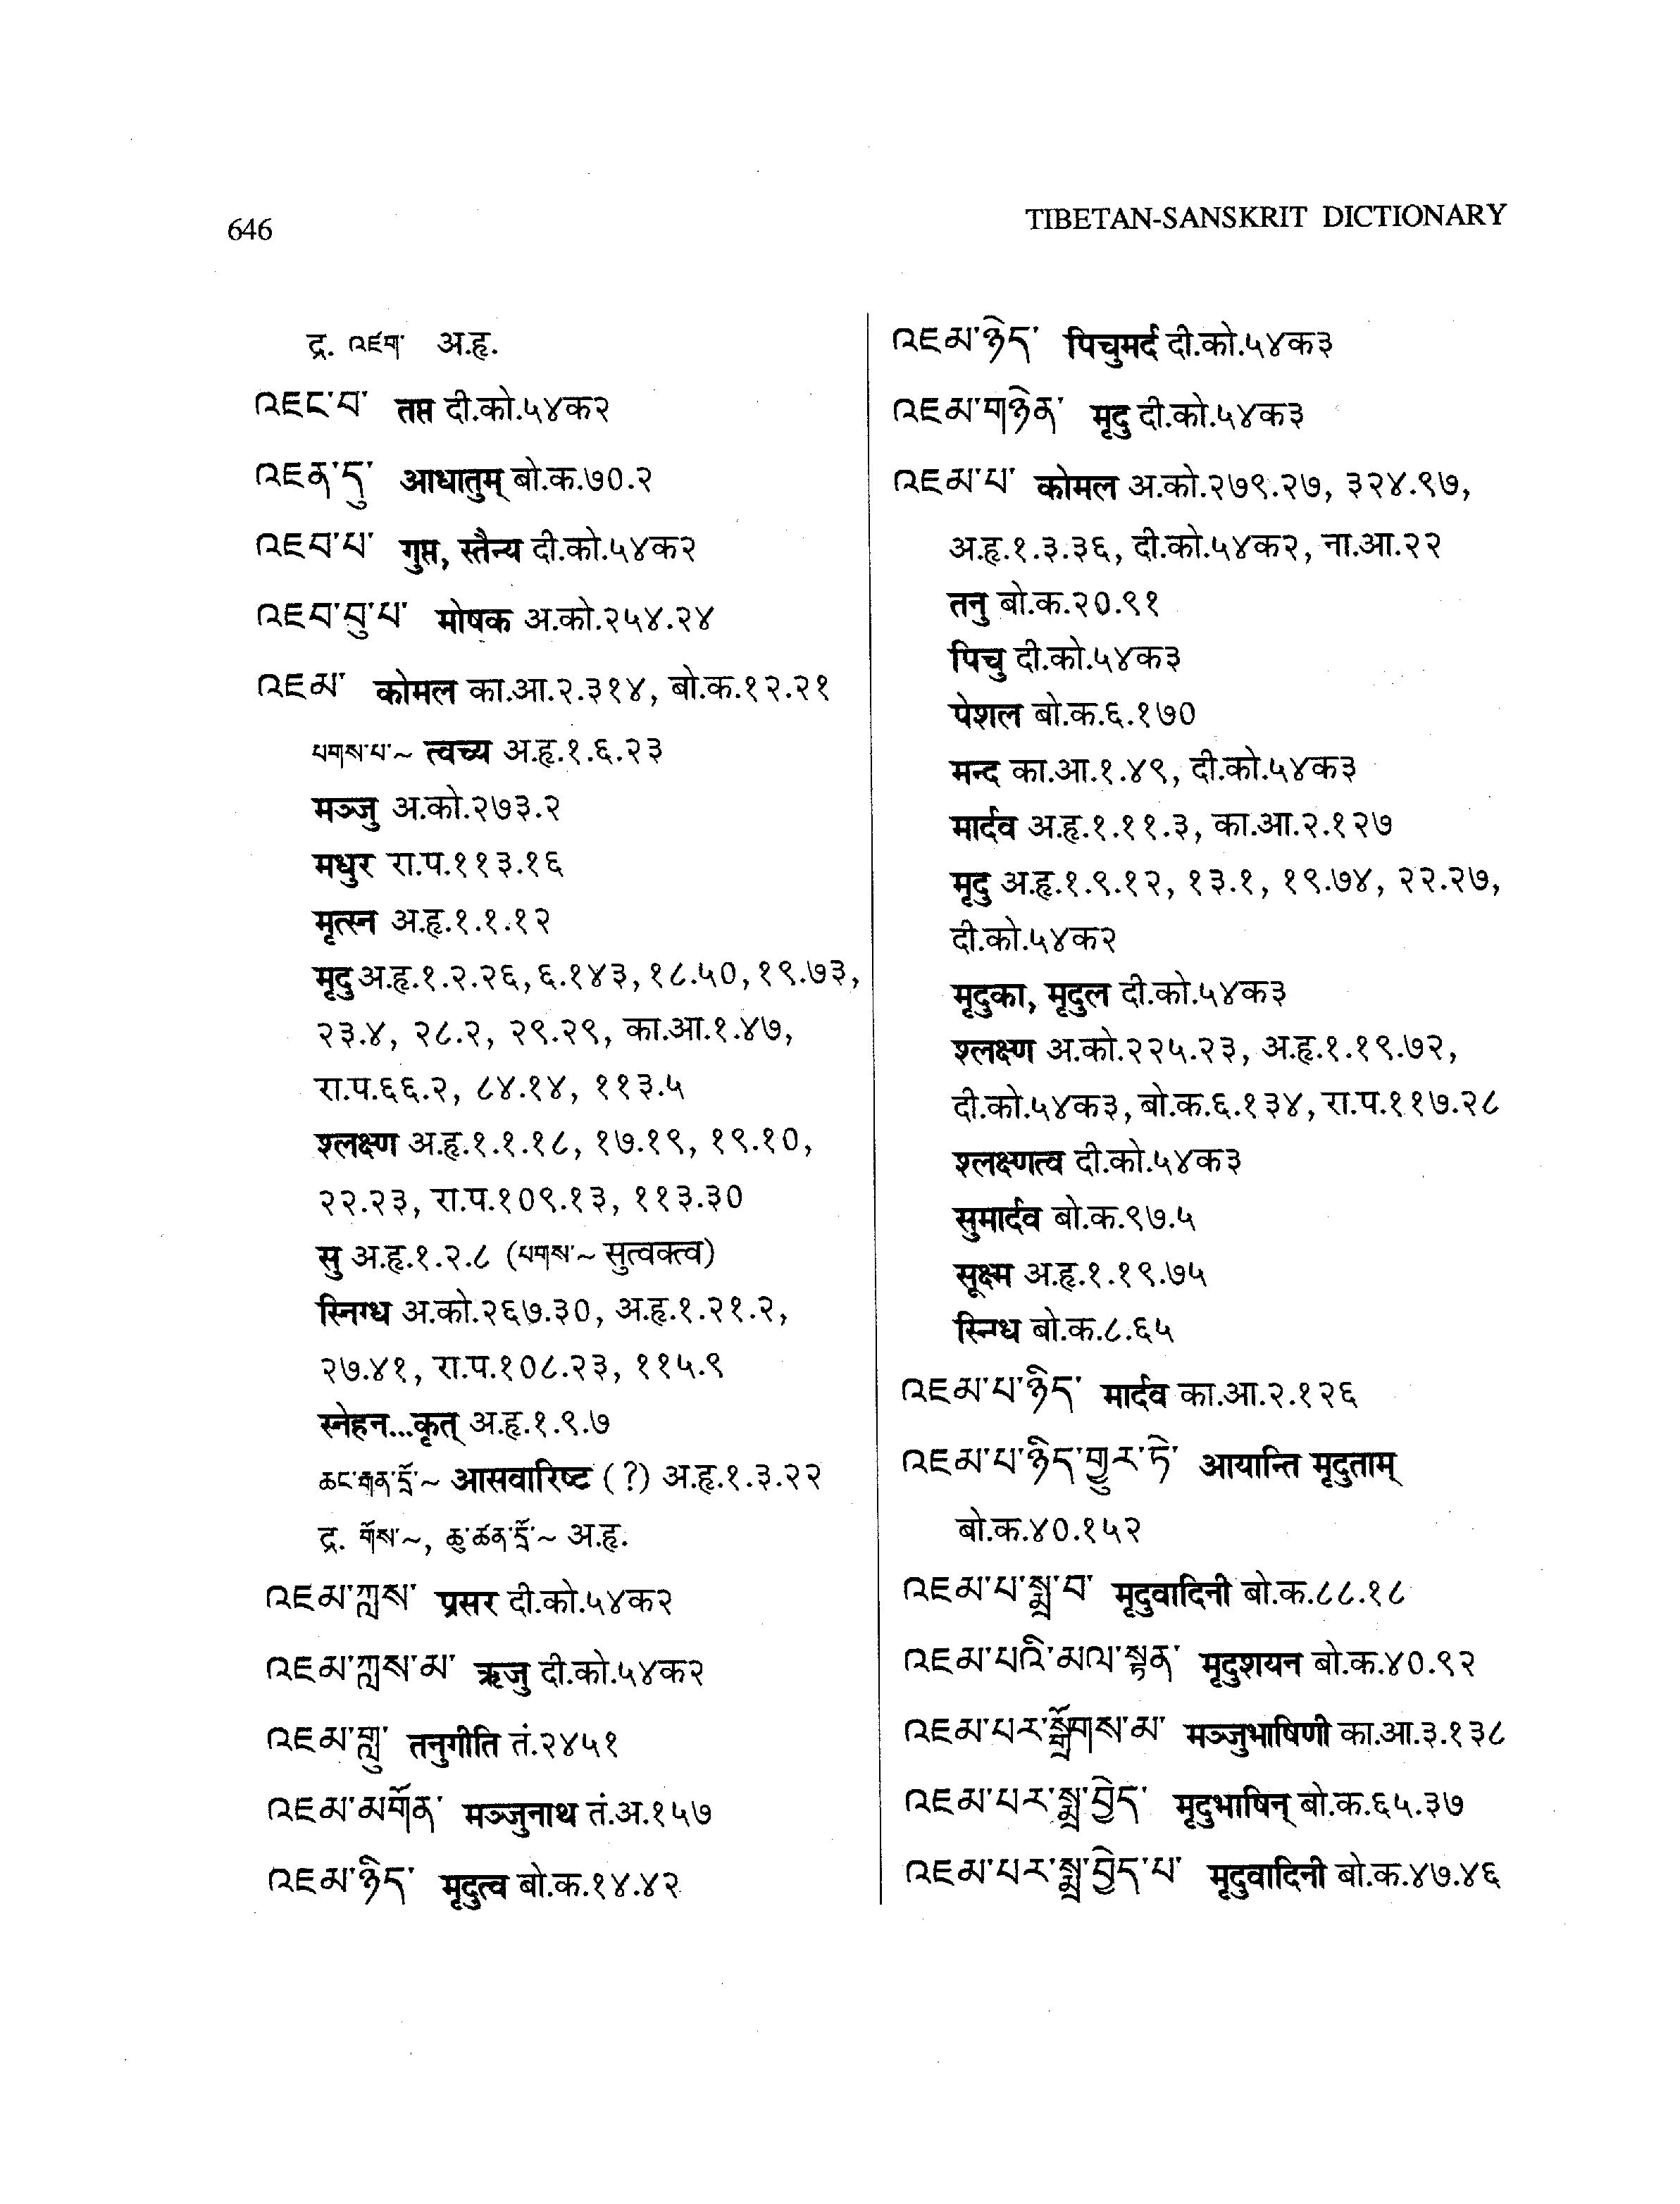 646
TIBETAN-SANSKRIT DICTIONARY
द्र. འཇག་ अ.हृ.
འཇང་བ་ तप्त दी.को.५४क२
འཇན་དུ་ आधातुम् बो.क.७०.२
འཇབ་པ་ गुप्त, स्तैन्य दी.को.५४क२
འཇབ་བུ་པ་ मोषक अ.को.२५४.२४
འཇམ་ कोमल का.आ.२.३१४, बो.क.१२.२१
པགས་པ་~ त्वच्य अ.हृ.१.६.२३
मञ्जु अ.को.२७३.२
मधुर रा.प.११३.१६
मृत्स्न अ.हृ.१.१.१२
मृदु अ.हृ.१.२.२६, ६.१४३, १८.५०, १९.७३,
२३.४, २८.२, २९.२९, का.आ.१.४७,
रा.प.६६.२, ८४.१४, ११३.५
श्लक्ष्ण अ.हृ.१.१.१८, १७.१९, १९.१०,
२२.२३, रा.प.१०९.१३, ११३.३०
सु अ.हृ.१.२.८ (པགས་~ सुत्वक्त्व)
स्निग्ध अ.को.२६७.३०, अ.हृ.१.२१.२,
२७.४१, रा.प.१०८.२३, ११५.९
स्नेहन...कृत् अ.हृ.१.९.७
ཆང་གན་དྲོ་~ आसवारिष्ट (?) अ.हृ.१.३.२२
द्र. གོས་~, ཆུ་ཚན་དྲོ་~ अ.हृ.
འཇམ་ཀླས་ प्रसर दी.को.५४क२
འཇམ་ཀླས་མ་ ऋजु दी.को.५४क२
འཇམ་གླུ་ तनुगीति तं.२४५१
འཇམ་མགོན་ मञ्जुनाथ तं.अ.१५७
འཇམ་ཉིད་ मृदुत्व बो.क.१४.४२
འཇམ་ཉེད་ पिचुमर्द दी.को.५४क३
འཇམ་གཉེན་ मृदु दी.को.५४क३
འཇམ་པ་ कोमल अ.को.२७९.२७, ३२४.९७,
अ.हृ.१.३.३६, दी.को.५४क२, ना.आ.२२
तनु बो.क.२०.९१
पिचु दी.को.५४क३
पेशल बो.क.६.१७०
मन्द का.आ.१.४९, दी.को.५४क३
मार्दव अ.हृ.१.११.३, का.आ.२.१२७
मृदु अ.हृ.१.९.१२, १३.१, १९.७४, २२.२७,
दी.को.५४क२
मृदुका, मृदुल दी.को.५४क३
श्लक्ष्ण अ.को.२२५.२३, अ.हृ.१.१९.७२,
दी.को.५४क३, बो.क.६.१३४, रा.प.११७.२८
श्लक्ष्णत्व दी.को.५४क३
सुमार्दव बो.क.९७.५
सूक्ष्म अ.हृ.१.१९.७५
स्निग्ध बो.क.८.६५
འཇམ་པ་ཉིད་ मार्दव का.आ.२.१२६
འཇམ་པ་ཉིད་གྱུར་ཏེ་ आयान्ति मृदुताम्
बो.क.४०.१५२
འཇམ་པ་སྨྲ་བ་ मृदुवादिनी बो.क.८८.१८
འཇམ་པའི་མལ་སྟན་ मृदुशयन बो.क.४०.९२
འཇམ་པར་སྒྲོགས་མ་ मञ्जुभाषिणी का.आ.३.१३८
འཇམ་པར་སྨྲ་བྱེད་ मृदुभाषिन् बो.क.६५.३७
འཇམ་པར་སྨྲ་བྱེད་པ་ मृदुवादिनी बो.क.४७.४६